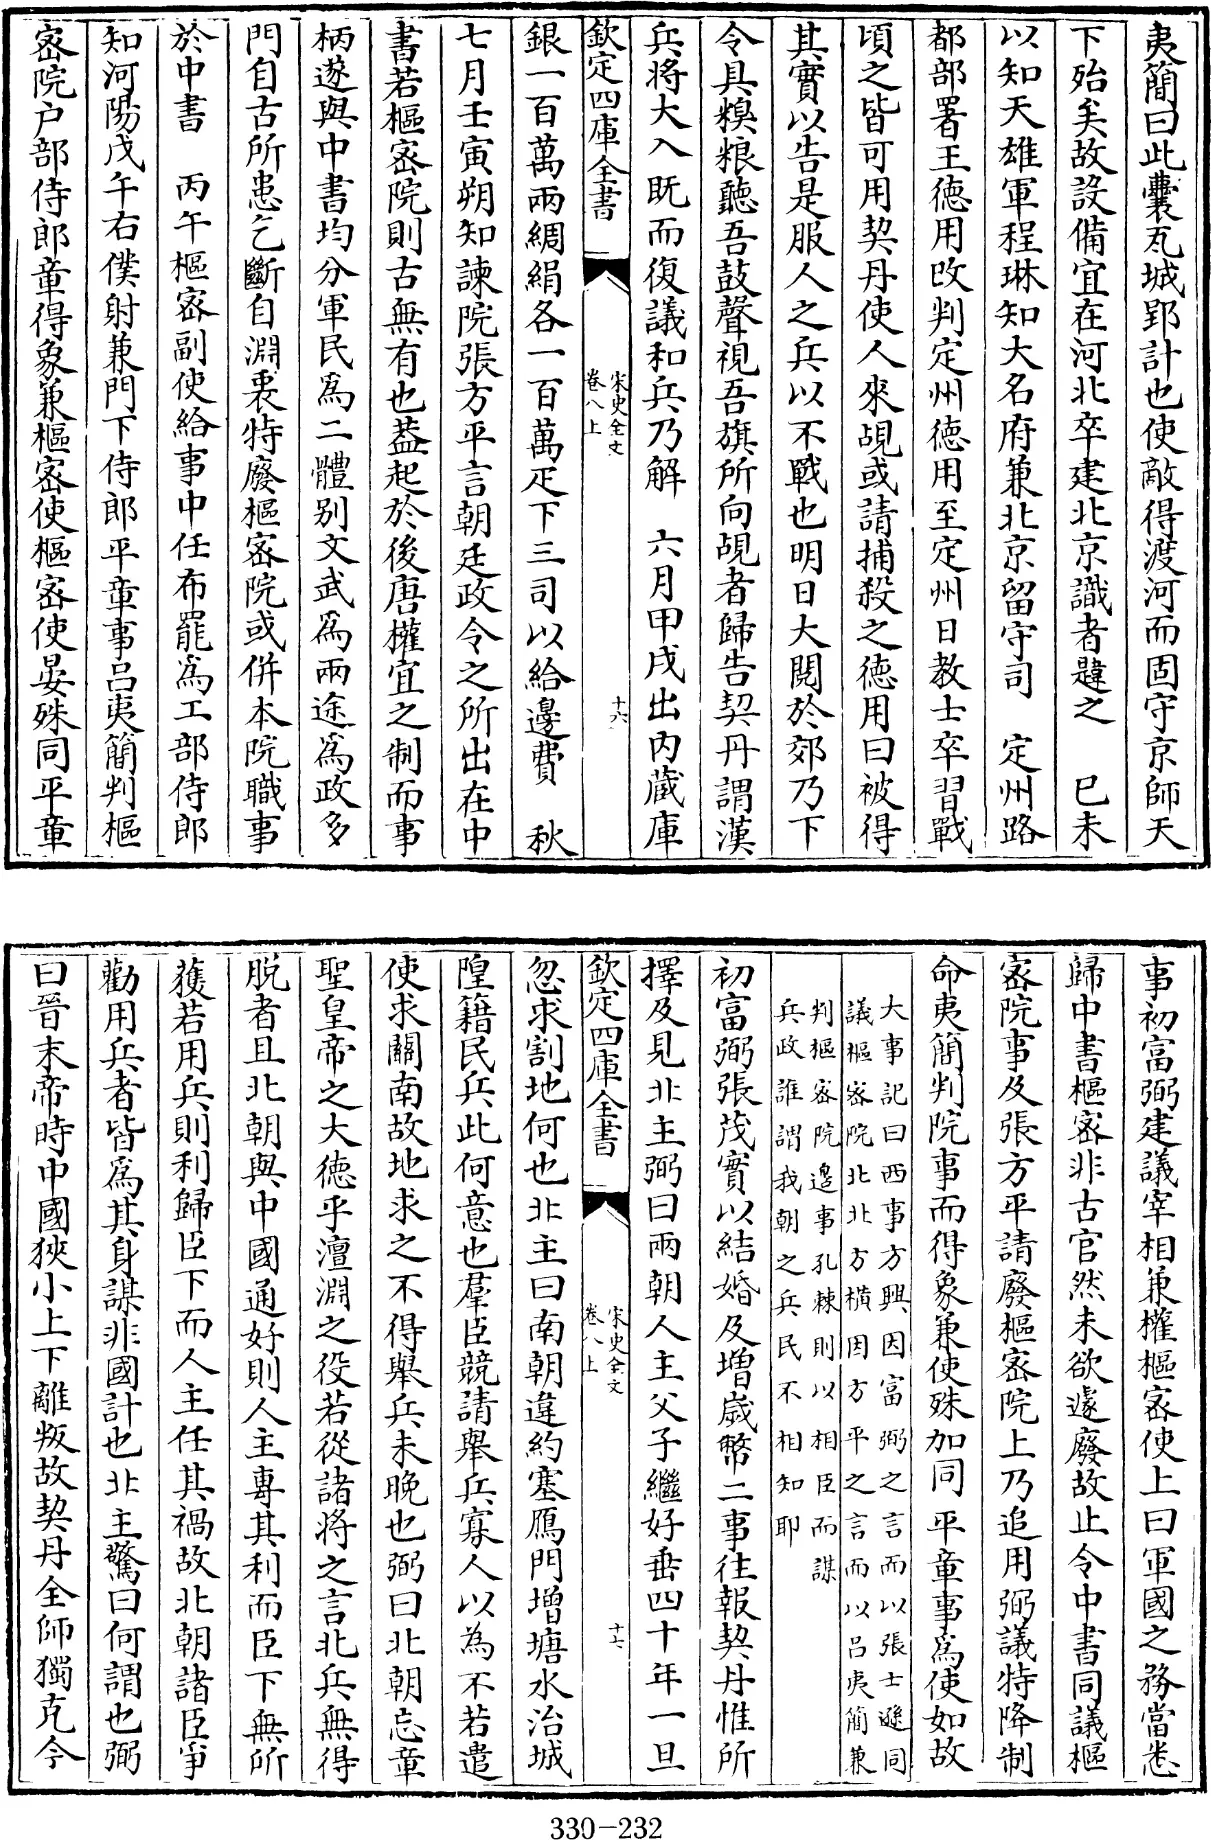 夷簡曰此囊瓦城郢計也使敵得渡河而固守京師天
下殆矣故設備宜在河北卒建北京識者韙之　己未
以知天雄軍程琳知大名府兼北京留守司　定州路
都部署王德用改判定州德用至定州日教士卒習戰
頃之皆可用契丹使人來覘或請捕殺之德用曰被得
其實以告是服人之兵以不戰也明日大閱於郊乃下
令具糗粮聽吾鼓聲視吾旗所向覘者歸告契丹謂漢
兵將大入既而復議和兵乃解　六月甲戌出内藏庫
欽定四庫全書
宋史全文
卷八上
十六
銀一百萬兩綢絹各一百萬疋下三司以給邊費　秋
七月壬寅朔知諫院張方平言朝廷政令之所出在中
書若樞密院則古無有也葢起於後唐權宜之制而事
柄遂與中書均分軍民為二體别文武為兩途為政多
門自古所患乞斷自淵衷特廢樞密院或併本院職事
於中書　丙午樞密副使給事中任布罷為工部侍郎
知河陽戊午右僕射兼門下侍郎平章事吕夷簡判樞
密院户部侍郎章得象兼樞密使樞密使晏殊同平章
事初富弼建議宰相兼權樞密使上曰軍國之務當悉
歸中書樞密非古官然未欲遽廢故止令中書同議樞
密院事及張方平請廢樞密院上乃追用弼議特降制
命夷簡判院事而得象兼使殊加同平章事為使如故
大事記曰西事方興因富弼之言而以張士遜同
議樞密院北北方横因方平之言而以吕夷簡兼
判樞密院邉事孔棘則以相臣而謀
兵政誰謂我朝之兵民不相知耶
初富弼張茂實以結婚及增歲幣二事往報契丹惟所
擇及見北主弼曰兩朝人主父子繼好垂四十年一旦
欽定四庫全書
宋史全文
卷八上
十七
忽求割地何也北主曰南朝違約塞鴈門增塘水治城
隍籍民兵此何意也羣臣競請舉兵寡人以為不若遣
使求關南故地求之不得舉兵未晚也弼曰北朝忘章
聖皇帝之大德乎澶淵之役若從諸將之言北兵無得
脱者且北朝與中國通好則人主專其利而臣下無所
獲若用兵則利歸臣下而人主任其禍故北朝諸臣爭
勸用兵者皆為其身謀非國計也北主驚曰何謂也弼
曰晉末帝時中國狹小上下離叛故契丹全師獨克今
330-232